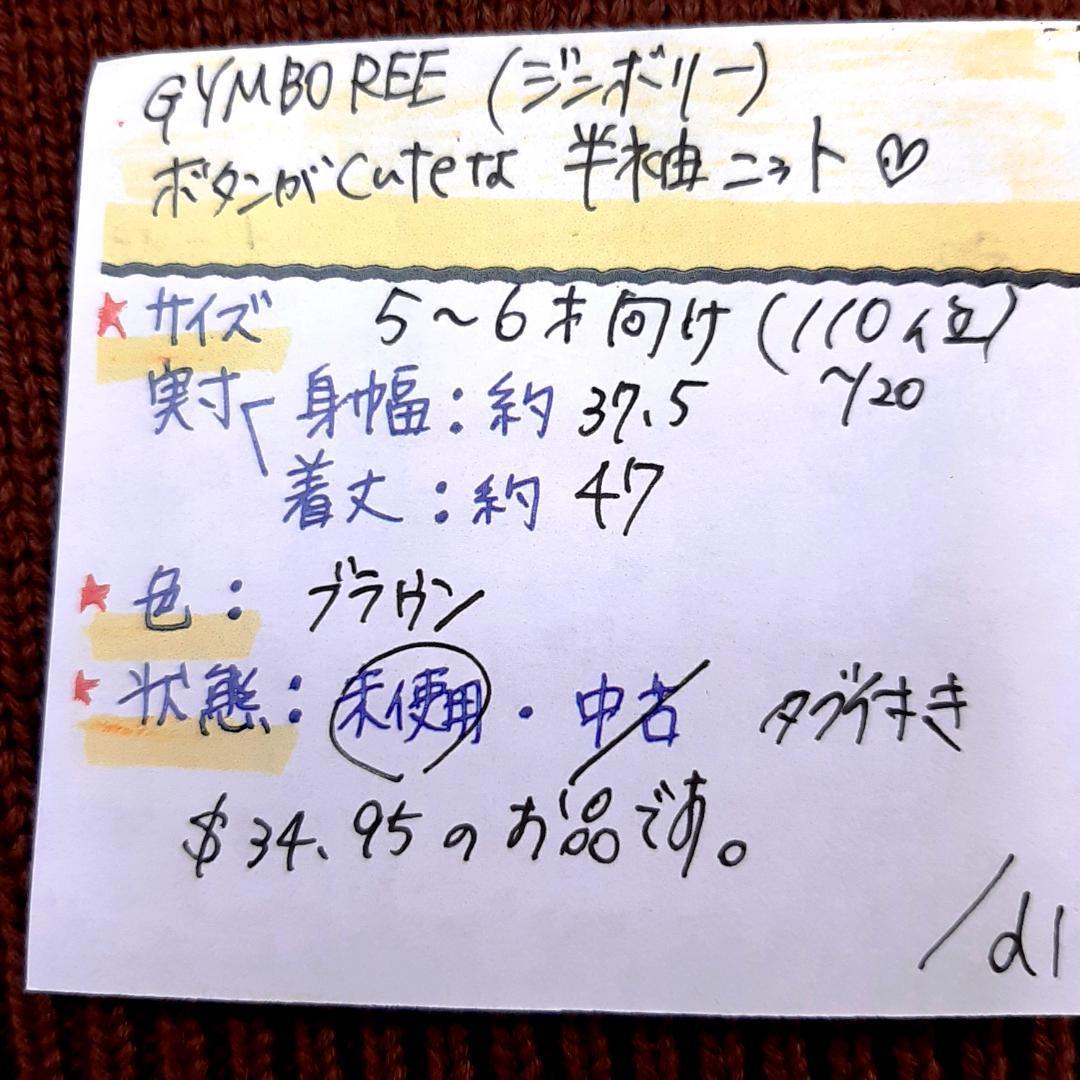 GYMBOREE (ジンボリー)
ボタンがCuteな 半袖ニット♡
★サイズ 5〜6才向け (110〜120位)
実寸 身幅：約 37.5
着丈：約 47
★色： ブラウン
★状態：未使用・中古 タグ付き
$34.95のお品です。
/d1